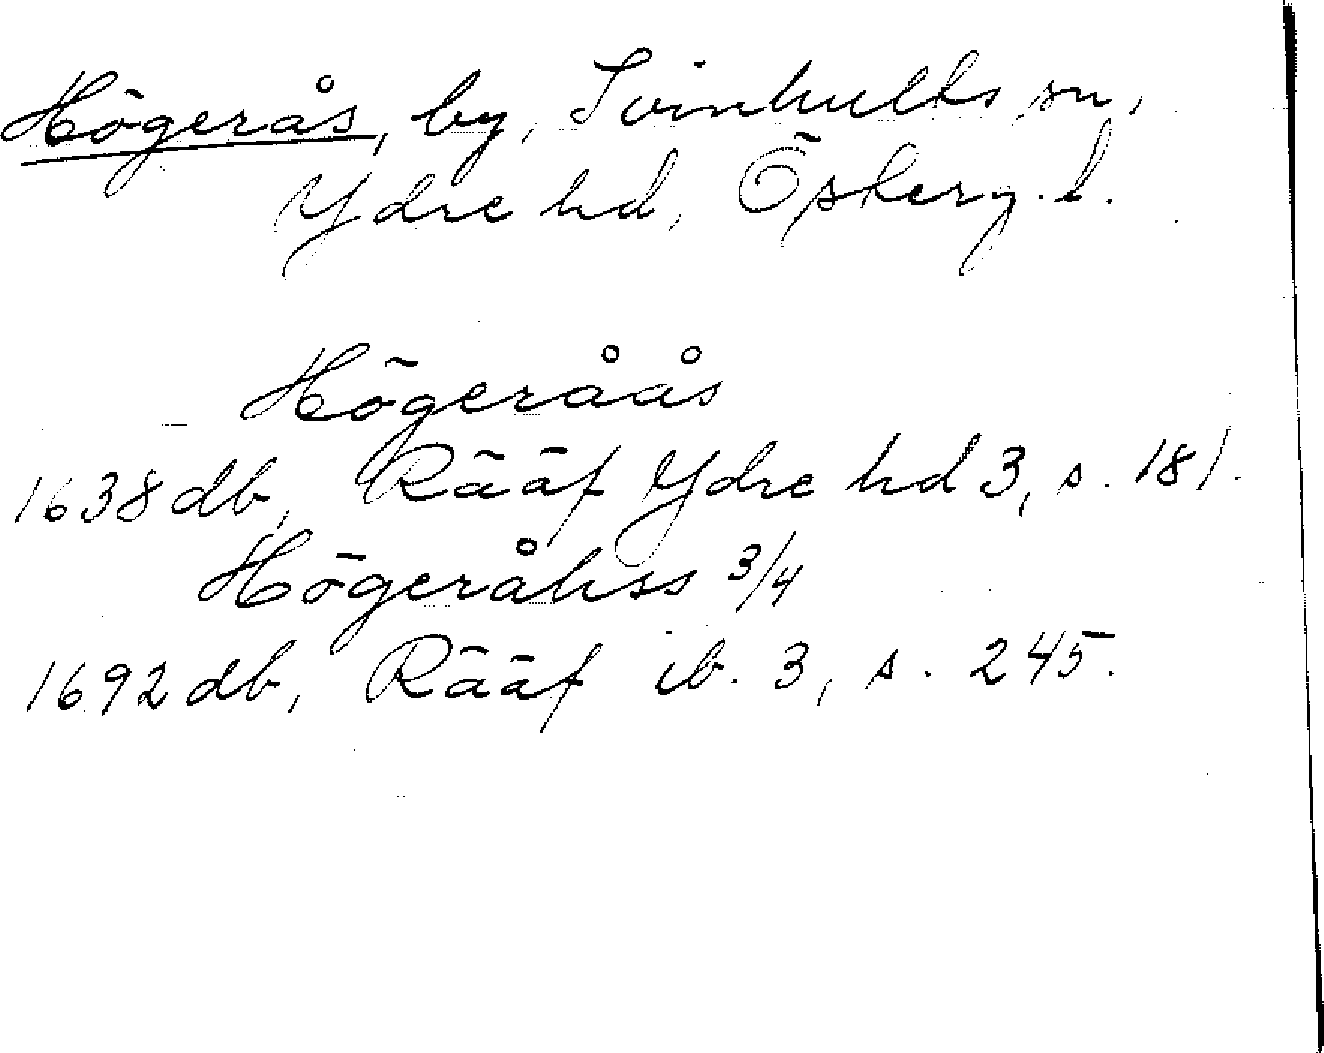 Högerås, by, Svinhults sn,
Ydre hd, Österg. l.
Högeråås
1638 db, Rääf Ydre hd 3, s. 181.
Högeråhss 3/4
1692 db, Rääf ib. 3, s. 245.